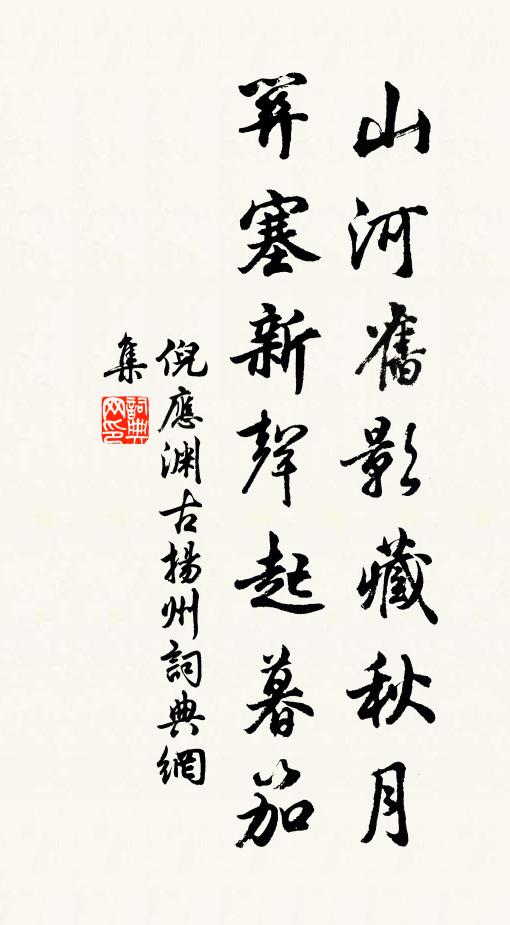 山河舊影藏秋月
塞新聲起暮笳
倪應渊古揚州詞典網
集
詞典網印